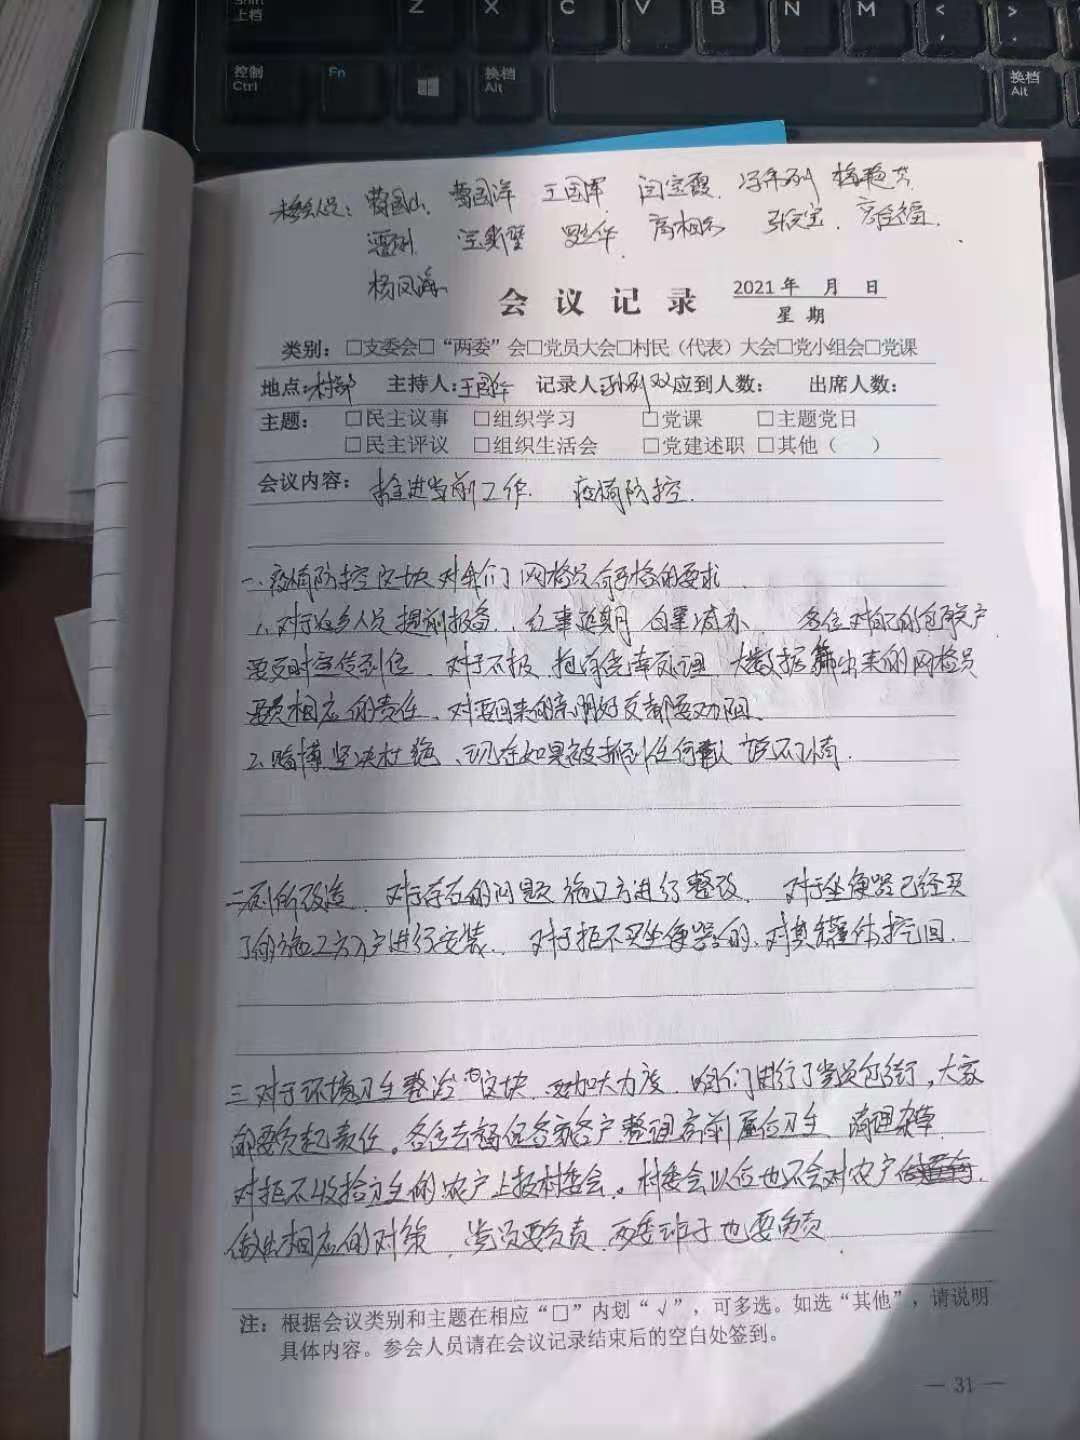 Shift
上档 Z X C V B N M < >
控制
Ctrl Fn 换档
Alt 换档
Alt
未参会人员: 曹国山 曹国洋 王国军 闫宝霞
高相 张文宝
杨凤海
会议记录 2021年 月 日
星期
类别:□支委会□“两委”会□党员大会□村民(代表)大会□党小组会□党课
地点:村部 主持人:王国 记录人: 双应到人数: 出席人数:
主题: □民主议事 □组织学习 □党课 □主题党日
□民主评议 □组织生活会 □党建述职 □其他( )
会议内容: 推进当前工作. 疫情防控.
一、疫情防控这块对我们网格员有严格的要求
1、对于返乡人员提前报备、红事延期 白事减办 各位对自己的包联户
要及时宣传到位、对于不报、 大数据筛出来的网格员
要负相应的责任、对要回来的亲朋好友都要劝阻、
2、赌博坚决杜绝、现在如果被抓到任何人 不讲情.
二、厕所改造、对于存在的问题施工方进行整改、 对于坐便器已经买
了的施工方入户进行安装、 对于拒不买坐便器的、对其罐体挖回.
三、对于环境卫生整治这块、要加大力度、咱们进行了党员包街,大家
都要负起责任。各包去 各家各户整理房前屋后卫生、清理杂草
对拒不收拾卫生的农户上报村委会。村委会 也不会对农户
做出相应的对策、党员要负责、两委班子也要负责
注: 根据会议类别和主题在相应“□”内划“√”,可多选。如选“其他”,请说明
具体内容。参会人员请在会议记录结束后的空白处签到。
— 31 —